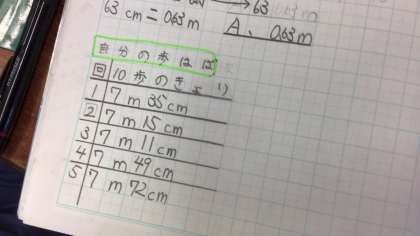 63
63 cm = 0.63 m
A、0.63m
自分の歩はば
回 10歩のきょり
1 7m 35cm
2 7m 15cm
3 7m 11cm
4 7m 49cm
5 7m 72cm